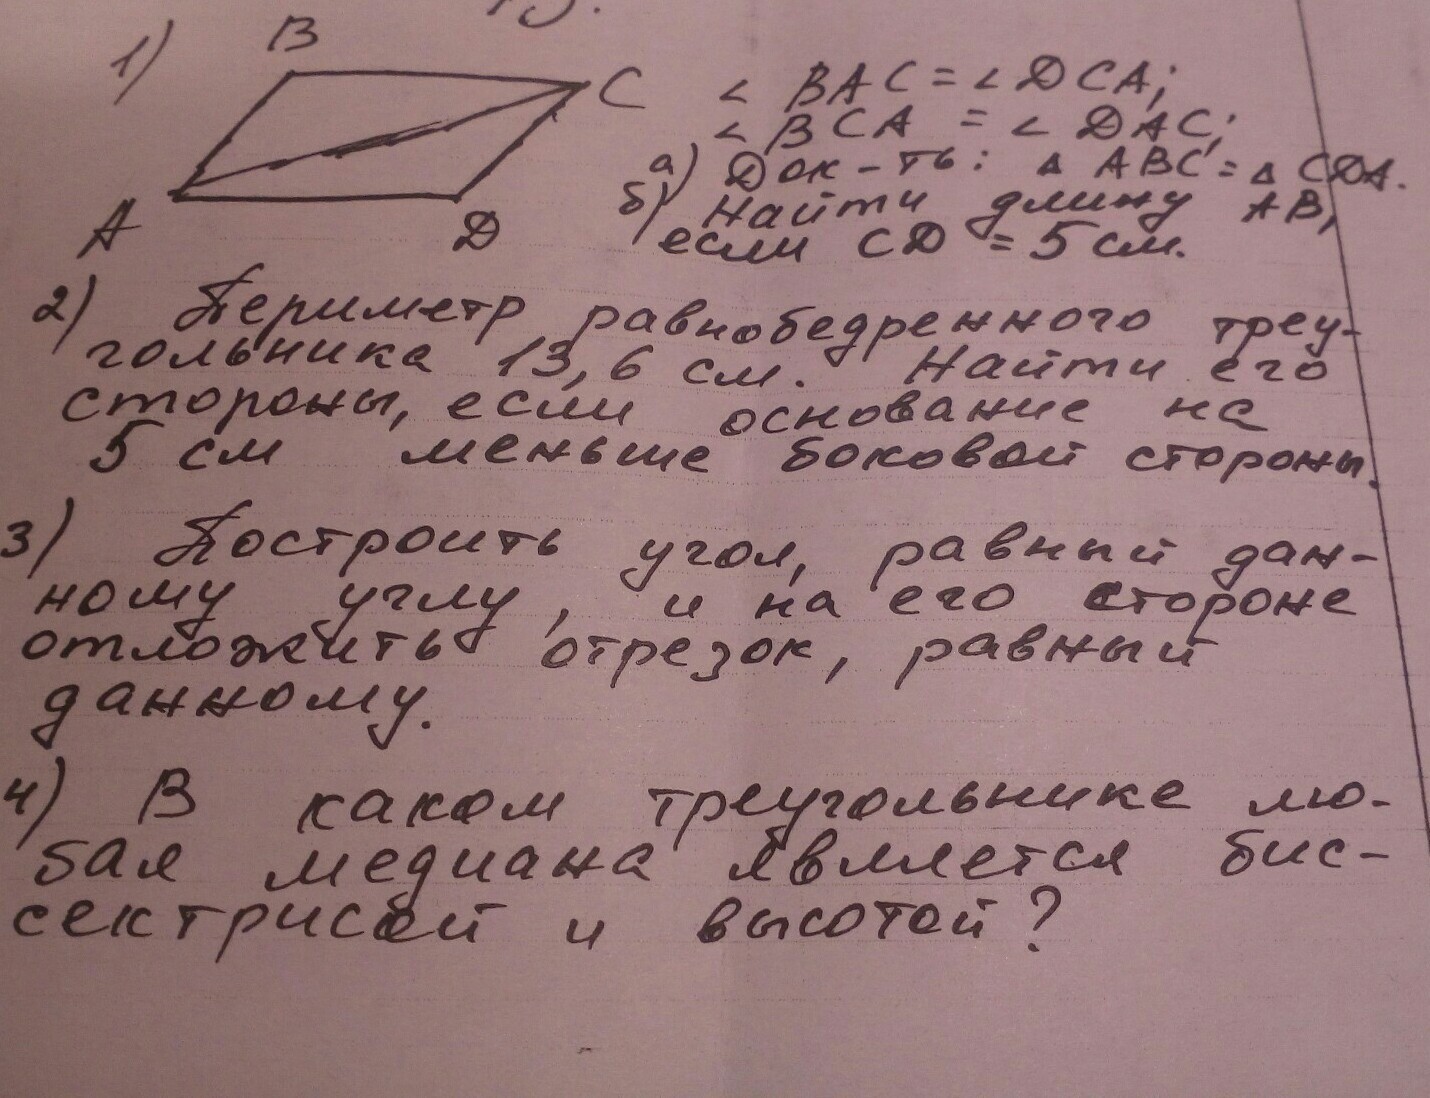 1)
B
C
A
D
∠ BAC = ∠ DCA;
∠ BCA = ∠ DAC;
а) Док-ть: △ ABC = △ CDA.
б) Найти длину AB,
если CD = 5 см.
2) Периметр равнобедренного треу-
гольника 13,6 см. Найти его
стороны, если основание на
5 см меньше боковой стороны.
3) Построить угол, равный дан-
ному углу, и на его стороне
отложить отрезок, равный
данному.
4) В каком треугольнике лю-
бая медиана является бис-
сектрисой и высотой?